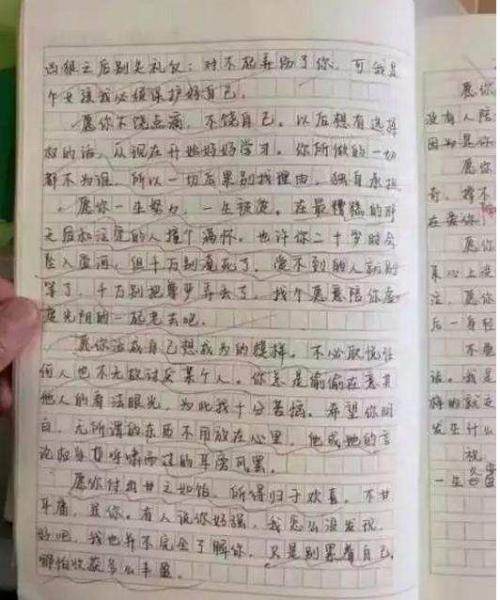 凶狠之后别失礼仪：对不起弄伤了你，可我是
个女孩我必须保护好自己。
愿你不饶点痛，不饶自己。以后想有选择
权的话，从现在开始好好学习。你所做的一切
都不为谁，所以一切后果别找理由，独自承担。
愿你一生努力，一生被爱。在最糟糕的昨
天后和注定的人撞个满怀。也许你二十岁时会
坠入爱河，但千万别淹死了，爱不到的人就别
等了，千万别把尊步弄丢了，找个愿意陪你虚
度光阴的一起老去吧。
愿你活成自己想成为的模样。不必取悦任
何人也不允放讨厌某个人。你总是偷偷在意其
他人的看法眼光，为此我十分苦恼。希望你明
白，无所谓的东西不用放在心里，他或她的言
论似每草呼啸而过的耳旁风罢。
愿你付出甘之如饴，所得归于欢喜。不甘
平庸，是你。有人说你好强，我怎么没发现，
好吧，我也并不完全了解你，只是别累着自己，
哪怕收获多么丰盈。
愿你
没有人陪
因为是你
愿你
在爱你。
愿你
真心上没
注，愿你
后一身轻
不要
话。我是
梅的就是
发生什么
祝